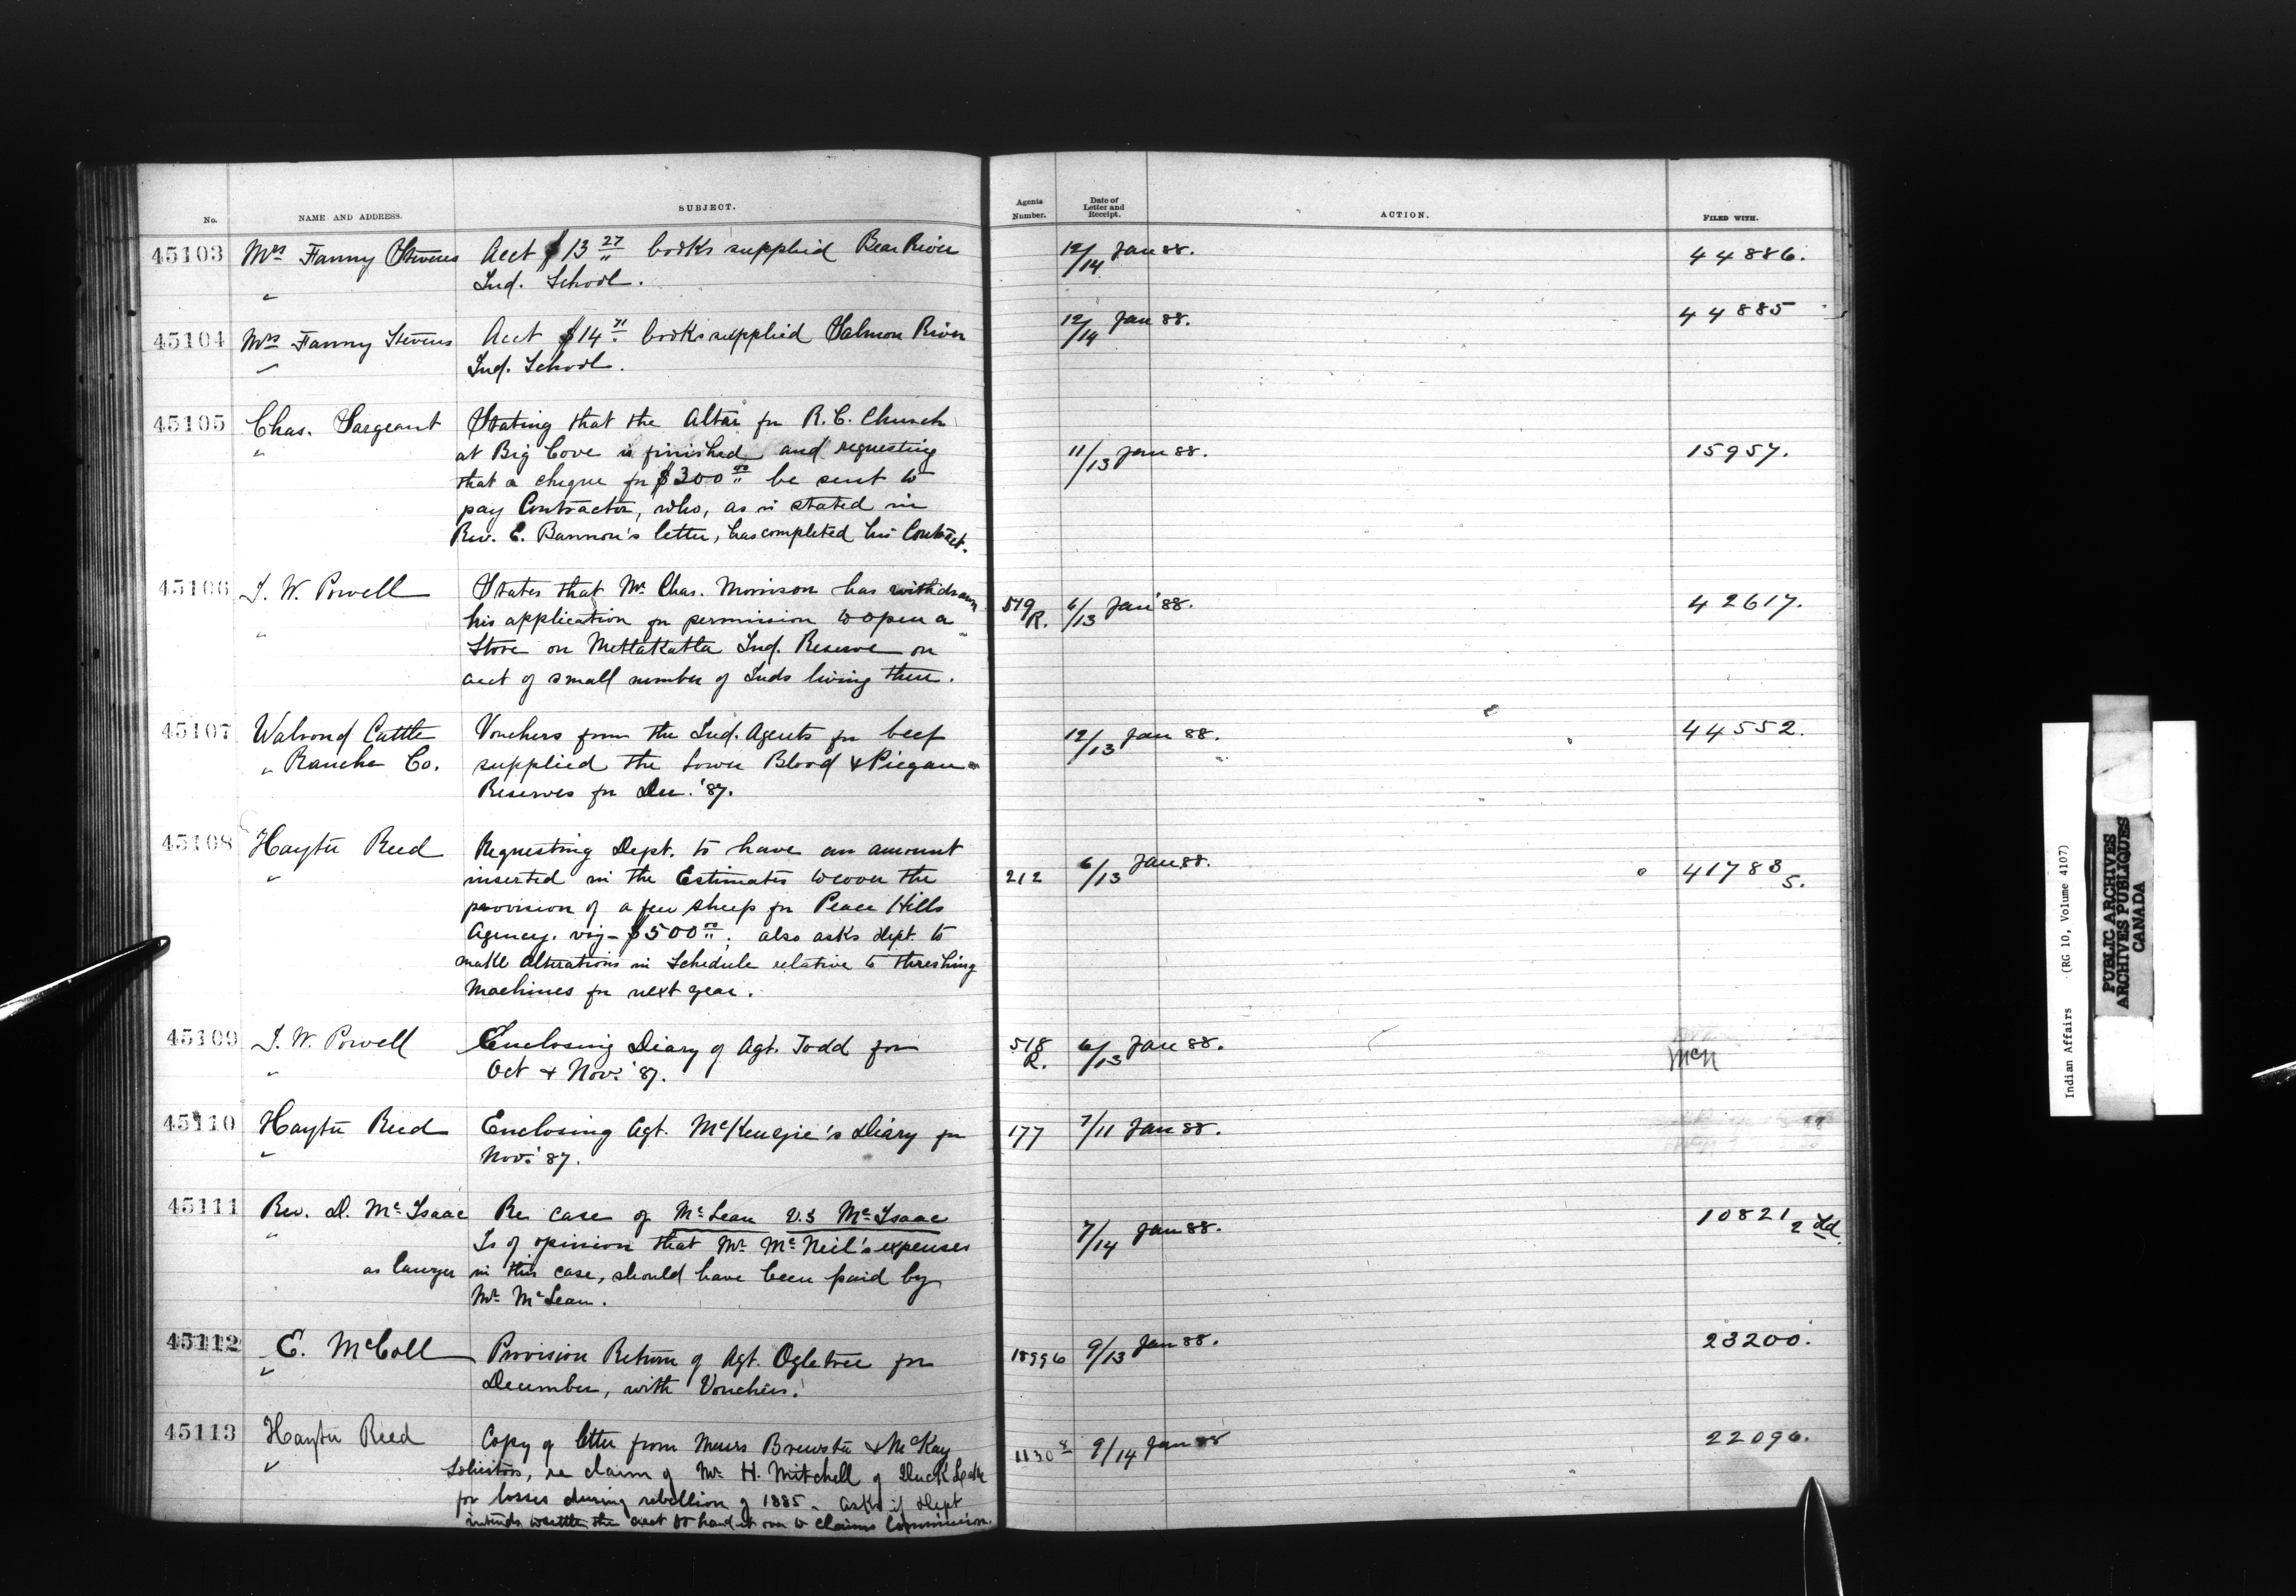 No. NAME AND ADDRESS. SUBJECT. Agents Number. Date of Letter and Receipt. ACTION. FILED WITH.
45103 Mrs Fanny Stevens Acct $13 27/" books supplied Bear River 12/14 Jan 88. 44886.
" Ind. School.
45104 Mrs Fanny Stevens Acct $14 71/" books supplied Salmon River 12/14 Jan 88. 44885
" Ind. School.
45105 Chas. Sargeant Stating that the Altar for R. C. Church
" at Big Cove is finished and requesting 11/13 Jan 88. 15957.
that a cheque for $300 00/" be sent to
pay Contractor, who, as is stated in
Rev. E. Bannon's letter, has completed his Contract.
45106 I. W. Powell States that Mr. Chas. Morrison has withdrawn 519/R. 6/13 Jan '88. 42617.
" his application for permission to open a
Store on Metlakatla Ind. Reserve on
acct of small number of Inds living there.
45107 Walrond Cattle Vouchers from the Ind. Agents for beef 12/13 Jan 88. 44552.
" Ranche Co. supplied the Lower Blood & Piegan
Reserves for Dec. '87.
45108 Hayter Reed Requesting Dept. to have an amount
" inserted in the Estimates to cover the 212 6/13 Jan 88. 41783 5.
provision of a few sheep for Peace Hills
Agency. viz - $500 00/"; also asks dept. to
make alterations in Schedule relative to threshing
machines for next year.
45109 I. W. Powell Enclosing Diary of Agt. Todd for 518 R. 6/13 Jan 88. McN
" Oct & Nov. '87.
45110 Hayter Reed Enclosing Agt. McKenzie's Diary for 177 7/11 Jan 88.
" Nov. '87.
45111 Rev. D. McIsaac Re case of McLean v.s McIsaac 7/14 Jan 88. 10821 2 Ld.
" Is of opinion that Mr. McNeil's expenses
as lawyer in this case, should have been paid by
Mr. McLean.
45112 E. McColl Provision Return of Agt. Ogletree for 18996 9/13 Jan 88. 23200.
" December, with Vouchers.
45113 Hayter Reed Copy of letter from Messrs Brewster & McKay 1130 8 9/14 Jan 88 22096.
" Solicitors, re claim of Mr. H. Mitchell of Duck Lake
for losses during rebellion of 1885. asks if Dept
intends to settle the acct or hand it over to Claims Commission.
Indian Affairs (RG 10, Volume 4107)
PUBLIC ARCHIVES
ARCHIVES PUBLIQUES
CANADA